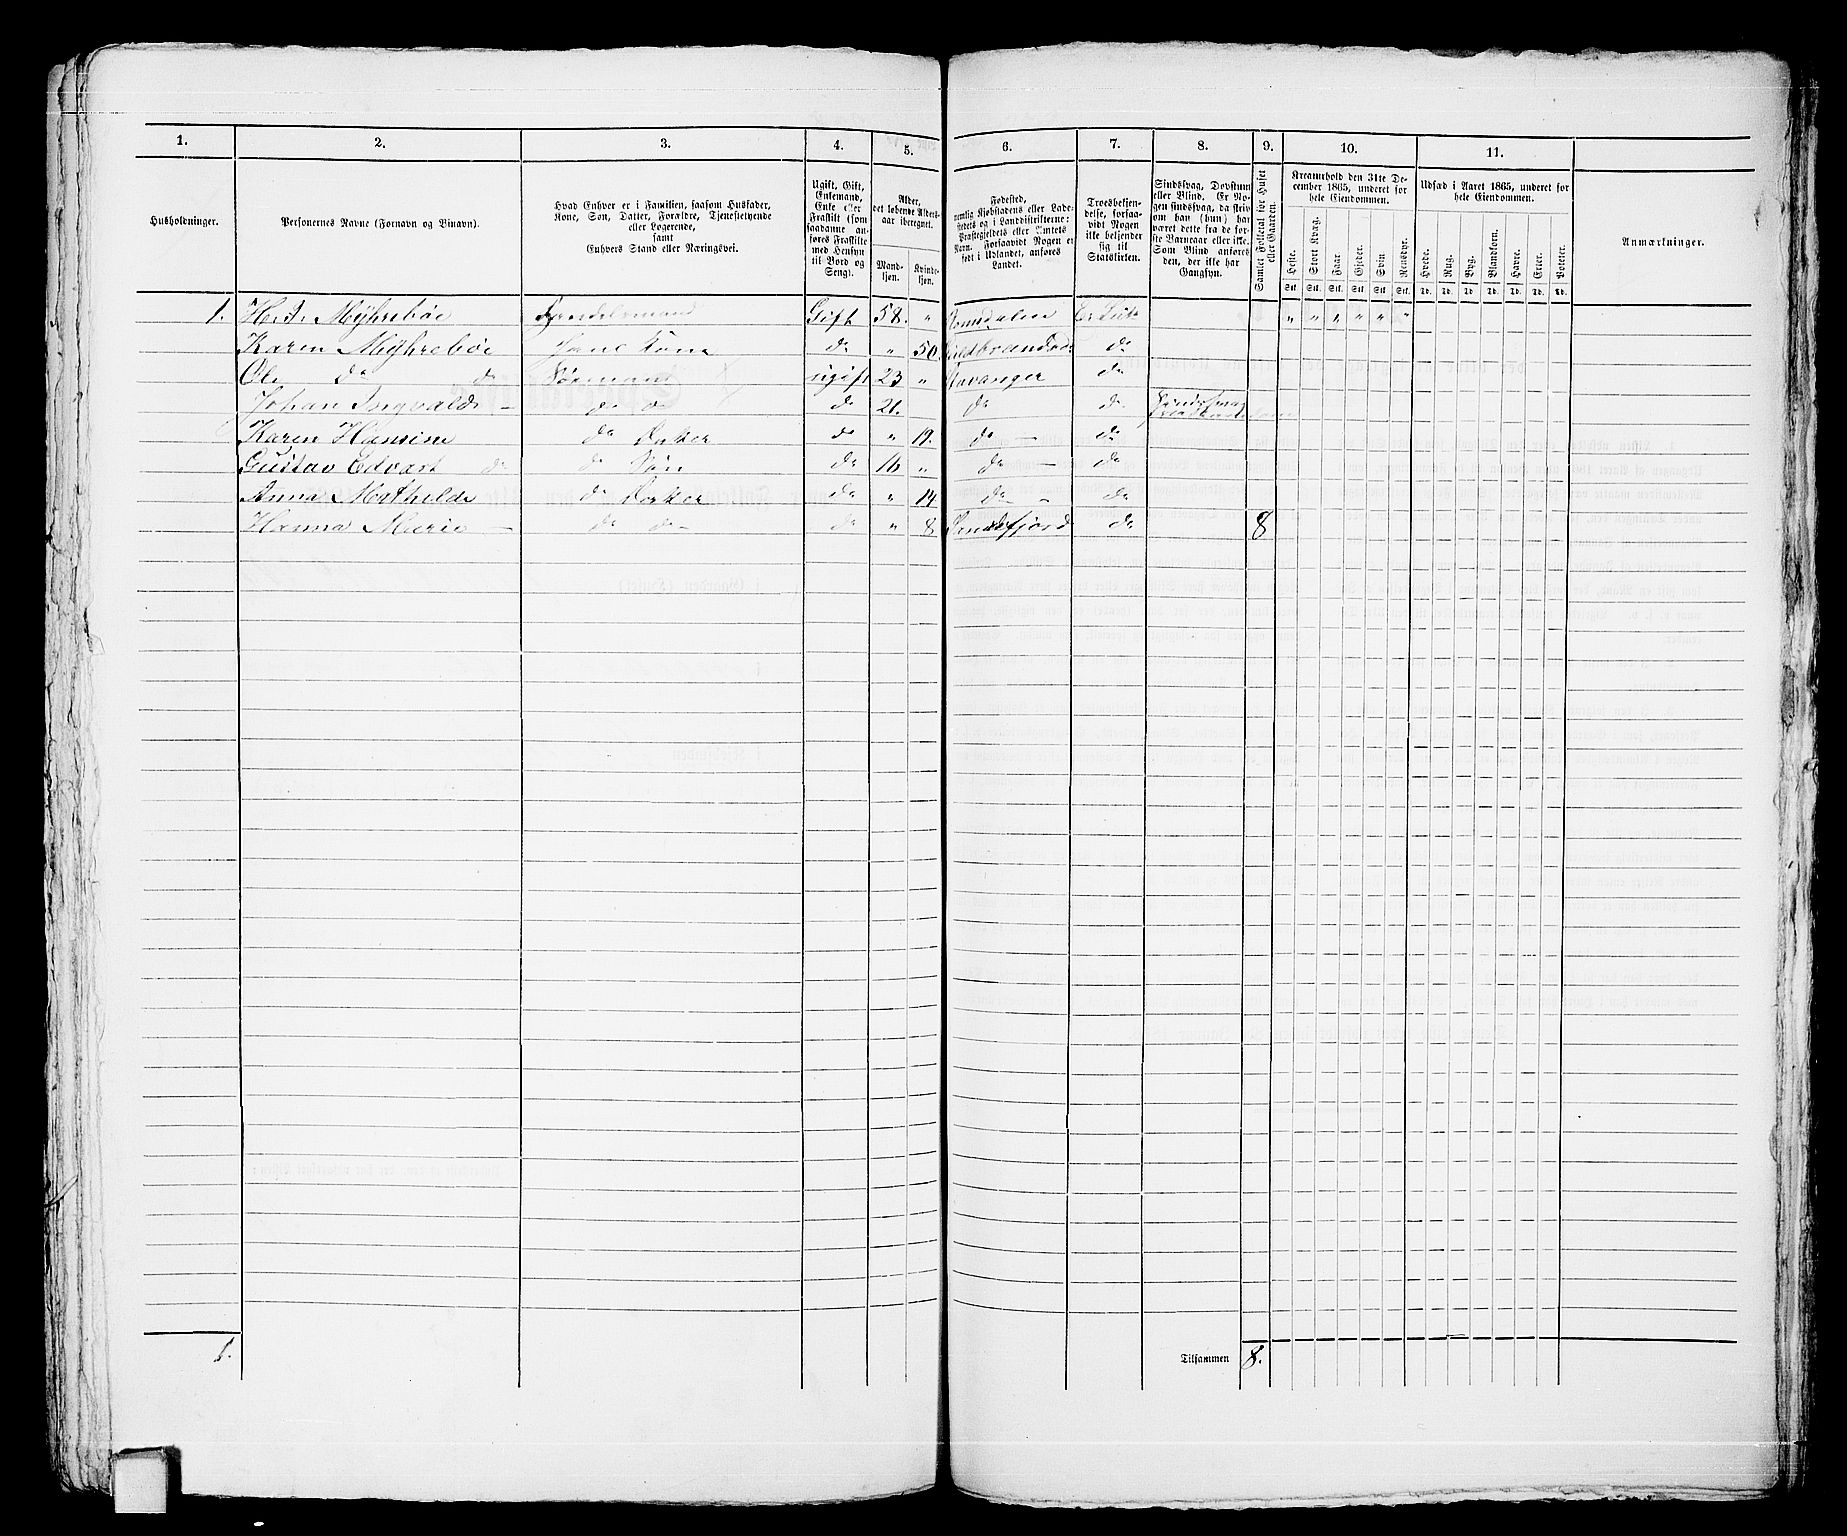 1. 2. 3. 4. 5. 6. 7. 8. 9. 10. 11.
Husholdninger.
Personernes Navne (Fornavn og Binavn).
Hvad Enhver er i Familien, saasom Husfader,
Kone, Søn, Datter, Forældre, Tjenestetyende
eller Logerende,
samt
Enhvers Stand eller Næringsvei.
Ugift, Gift,
Enkemand,
Enke eller
Fraskilt (som
saadanne an-
føres Fraskilte
med Hensyn
til Bord og
Seng).
Alder,
det løbende Alders-
aar iberegnet.
Mand-
kjøn.
Kvinde-
kjøn.
Fødested,
nemlig Kjøbstadens eller Lade-
stedets og i Landdistrikterne:
Præstegjeldets eller Amtets
Navn. Forsaavidt Nogen er
født i Udlandet, anføres
Landet.
Troesbekjen-
delse, forsaa-
vidt Nogen
ikke bekjender
sig til
Statskirken.
Sindssvag, Døvstum
eller Blind. Er No-
gen sindssvag, da skriv
om han (hun) har
været dette fra de før-
ste Barneaar eller ikke.
Som Blind anføres
den, der ikke har
Gangsyn.
Samlet Folketal for Huset
eller Gaarden.
Kreaturhold den 31te De-
cember 1865, underet for
hele Eiendommen.
Heste. Stort Kvæg. Faar. Gjeder. Svin. Rensdyr.
Stk. Stk. Stk. Stk. Stk. Stk.
Udsæd i Aaret 1865, underet for
hele Eiendommen.
Hvede. Rug. Byg. Blandkorn. Havre. Erter. Poteter.
Td. Td. Td. Td. Td. Td. Td.
Anmærkninger.
1. Myhrebøe Gift 58. " Romsdalen " " " " " "
Karen Myhrebøe Hans Kone do " 50. do
Ole do do Sømand ugift 23 " Stavanger do
Johan Ingvald — do do do 21. do do
Karen Hansine do Datter do " 19. do — do
Gustav Edvart do do Søn do 16 " do — do
Anna Mathilde do Datter do " 14 do — do
Hanna Marie — do do — do " 8 Sandefjord do 8
1. Tilsammen 8.